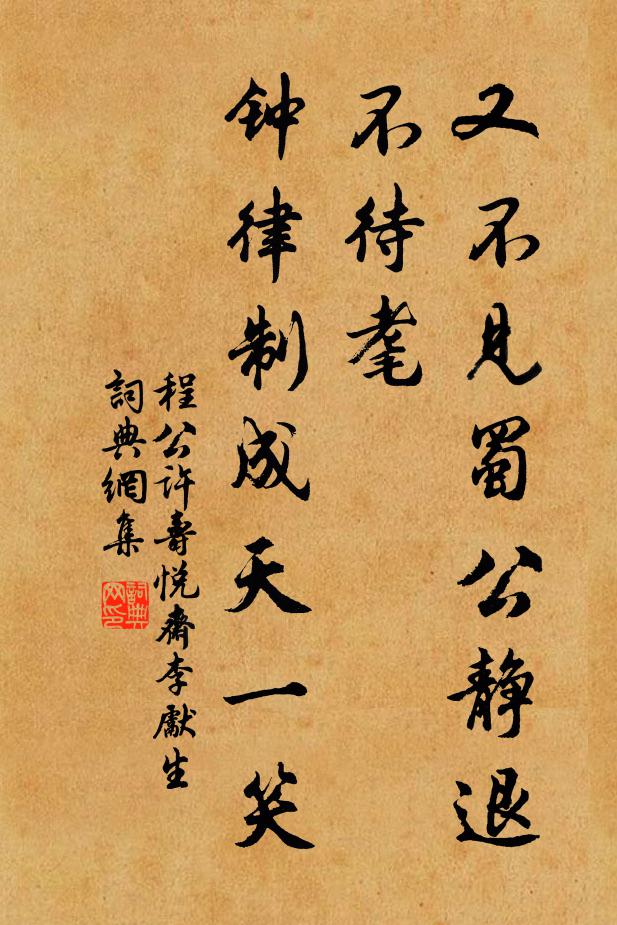 又不见蜀公静退
不待耄
钟律制成天一笑
程公许壽悦齋李獻生
詞典網集
詞典
网印